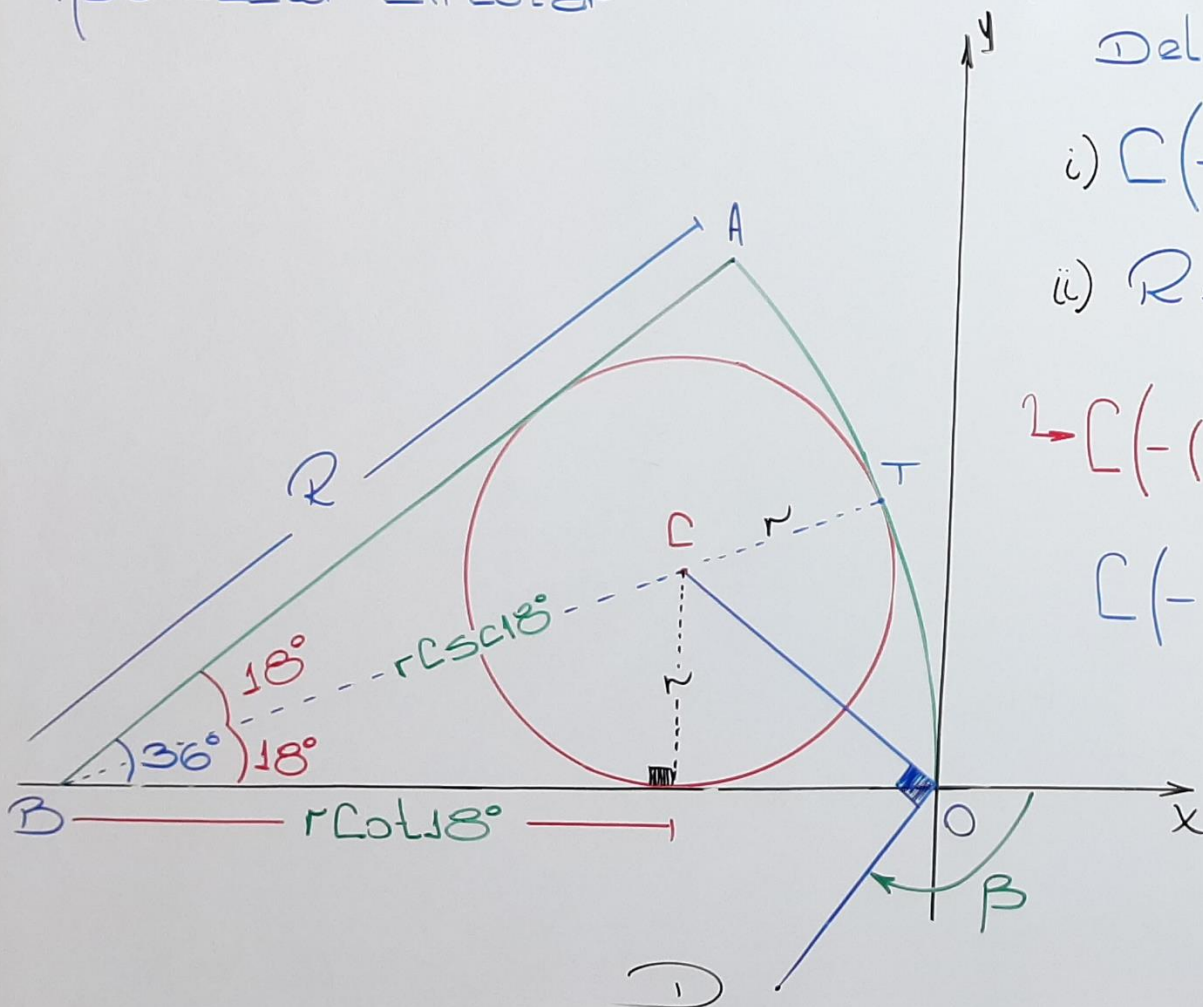 y
Del
i) C(-
ii) R
A
R
T
↳ C(-(
C
r
C(-
rCsc18°
18°
r
36°
18°
B
rCot18°
O
x
β
D